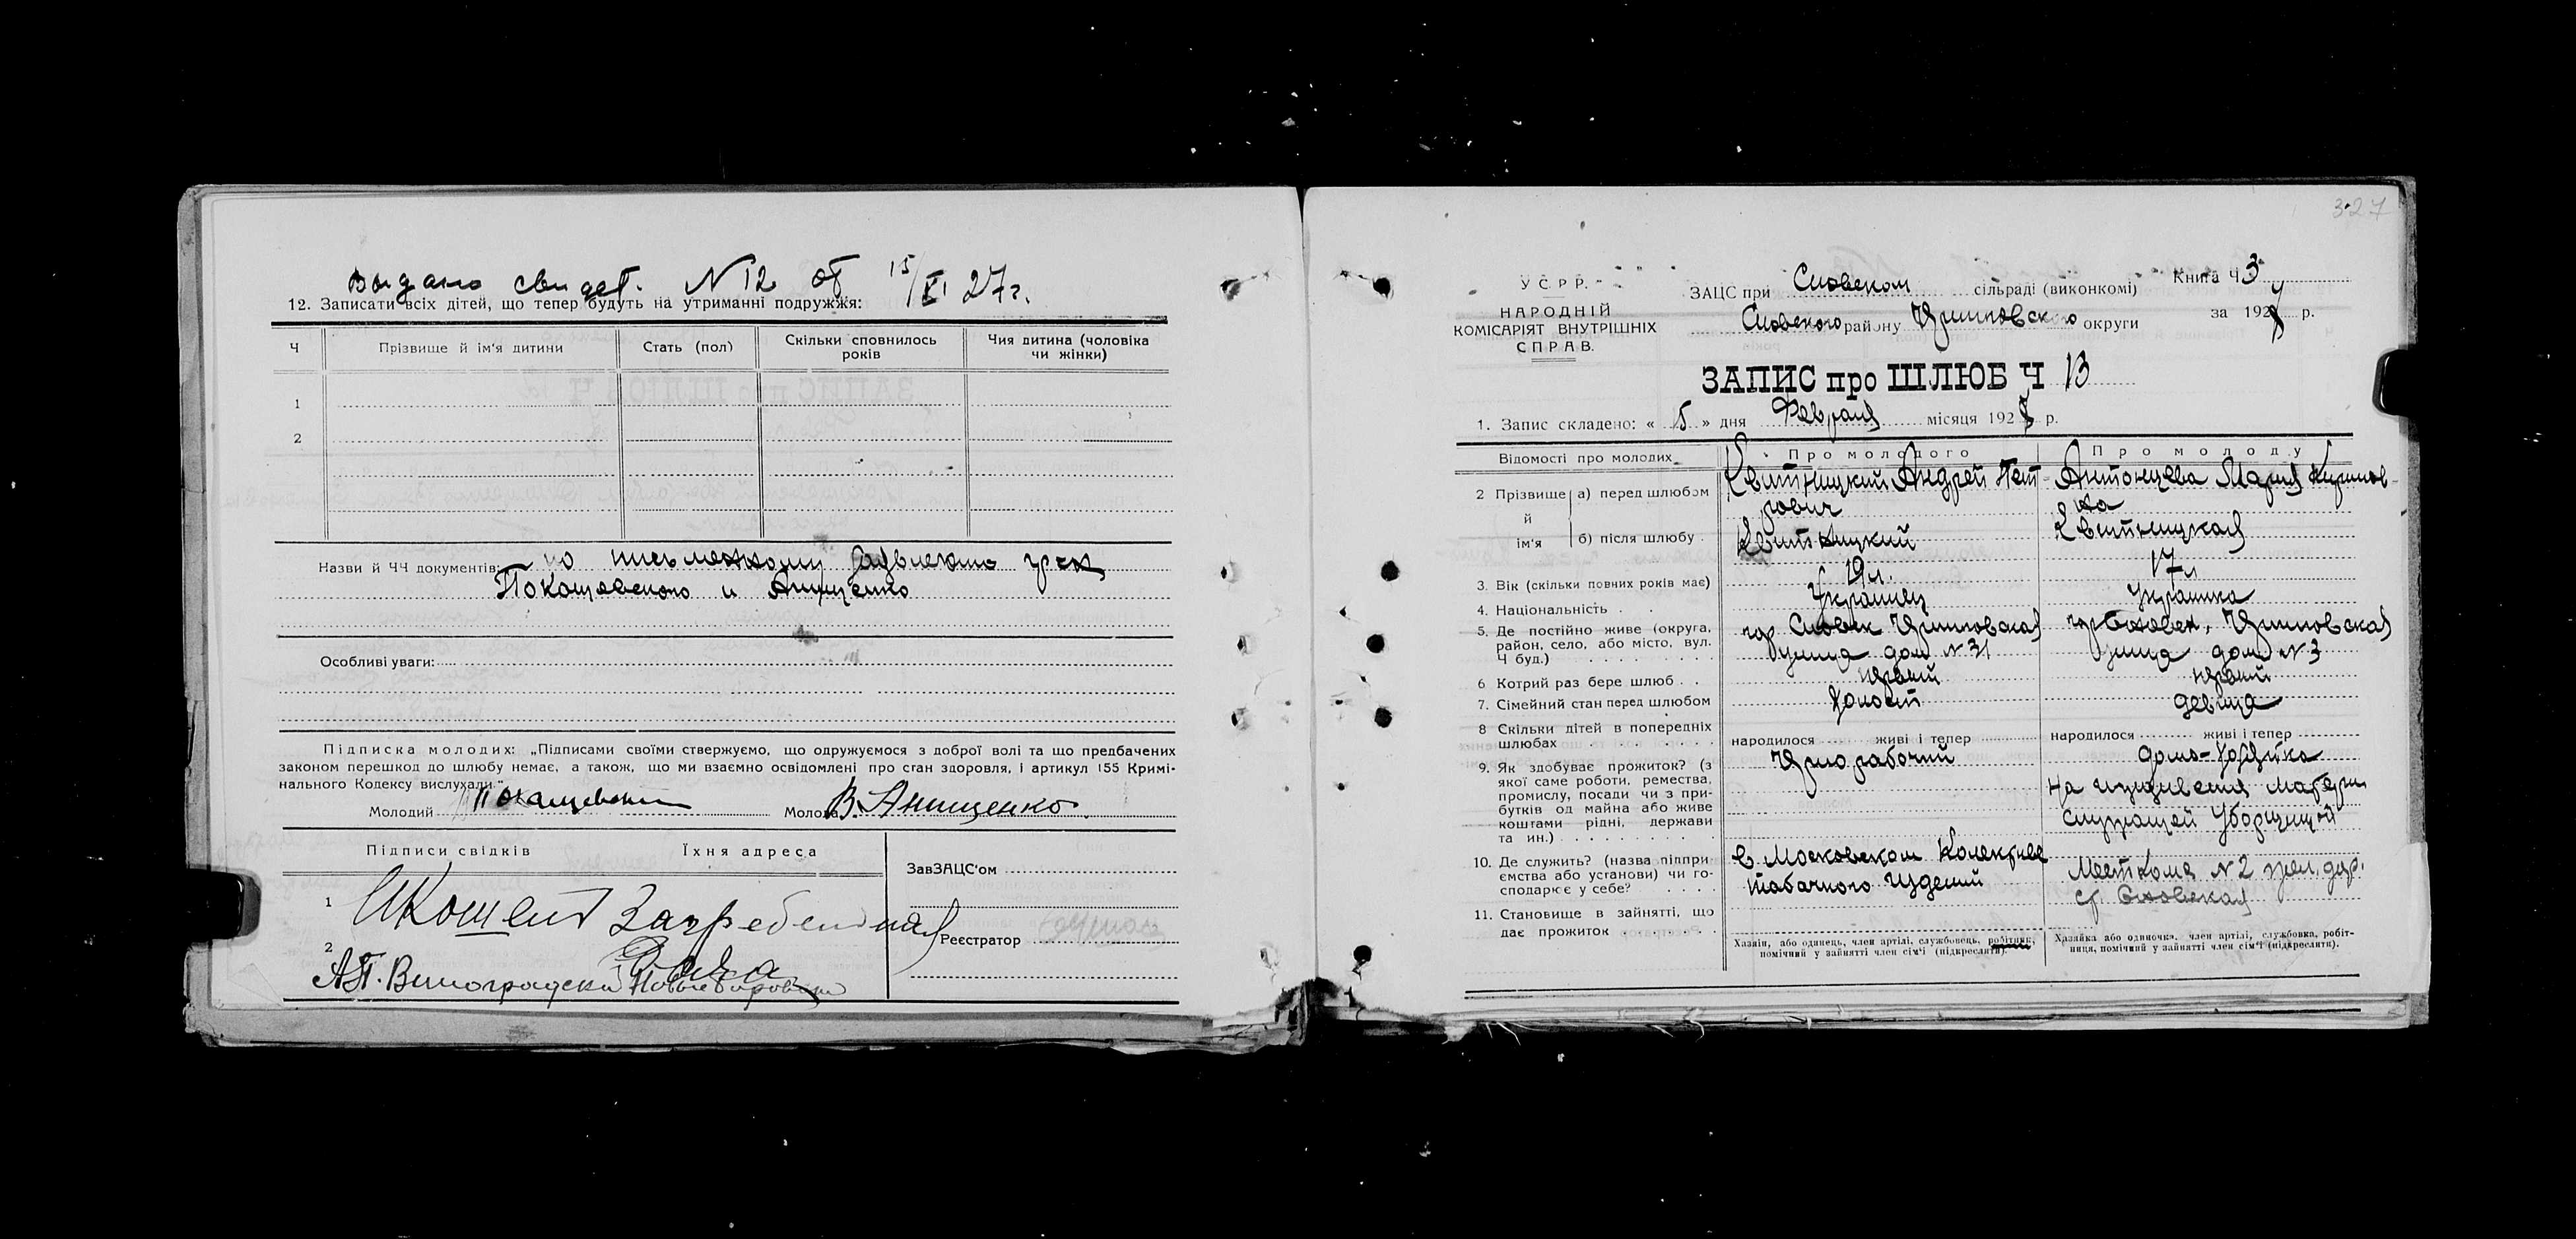 Выдано свидет. N 12 от 15/XI 27 г.
12. Записати всіх дітей, що тепер будуть на утриманні подружжя:
Ч
Прізвище й ім'я дитини
Стать (пол)
Скільки сповнилось років
Чия дитина (чоловіка чи жінки)
1
2
Назви й ЧЧ документів: по письменному заявлению гр-н
Покощевского и Анищенко
Особливі уваги:
Підписка молодих: „Підписами своїми стверджуємо, що одружуємося з доброї волі та що предбачених
законом перешкод до шлюбу немає, а також, що ми взаємно освідомлені про стан здоровля, і артикул 155 Кримі-
нального Кодексу вислухали."
Молодий Молода В. Анищенко
Підписи свідків Їхня адреса
ЗавЗАЦС'ом
1
Реєстратор
2
А.П. Виноградский
327
УСРР.
НАРОДНІЙ
КОМІСАРІЯТ ВНУТРІШНІХ
СПРАВ.
ЗАЦС при сільраді (виконкомі)
Книга Ч 3
району округи
за 192 р.
ЗАПИС про ШЛЮБ Ч 13
1. Запис складено: « 5 » дня Февраля місяця 192 р.
Відомості про молодих
Про молодого
Про молоду
2 Прізвище й ім'я
а) перед шлюбом
Квитницкий Андрей Пет
рович
Антонцева Мария
б) після шлюбу
Квитницкий
Квитницкая
3. Вік (скільки повних років має)
19 л.
17 л
4. Національність
Украинец
Украинка
5. Де постійно живе (округа,
район, село, або місто, вул.
Ч буд.)
гор
улица дом N 31
гор
улица дом N 3
6 Котрий раз бере шлюб
первый
первый
7. Сімейний стан перед шлюбом
холост
девица
8 Скільки дітей в попередніх
шлюбах
народилося живі і тепер
народилося живі і тепер
9. Як здобуває прожиток? (з
якої саме роботи, ремества,
промислу, посади чи з при-
бутків од майна або живе
коштами рідні, держави
та ин.)
Чернорабочий
домо-хозяйка
на иждивении матери
служащей уборщицей
10. Де служить? (назва підпри
ємства або установи) чи го-
сподарює у себе?
в Московском Коллективе
табачного изделий
Месткома N 2 жел. дор.
ст. Сновская
11. Становище в зайнятті, що
дає прожиток
Хазяїн, або одинець, член артілі, службовець, робітник,
помічний у зайнятті член сім'ї (підкреслити).
Хазяйка або одиночка, член артілі, службовка, робіт-
ниця, помічний у зайнятті член сім'ї (підкреслити).